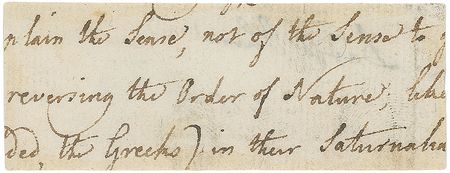 plain the Sense, not of the Sense to
reversing the Order of Nature; like
ded, the Greeks) in their Saturnalia